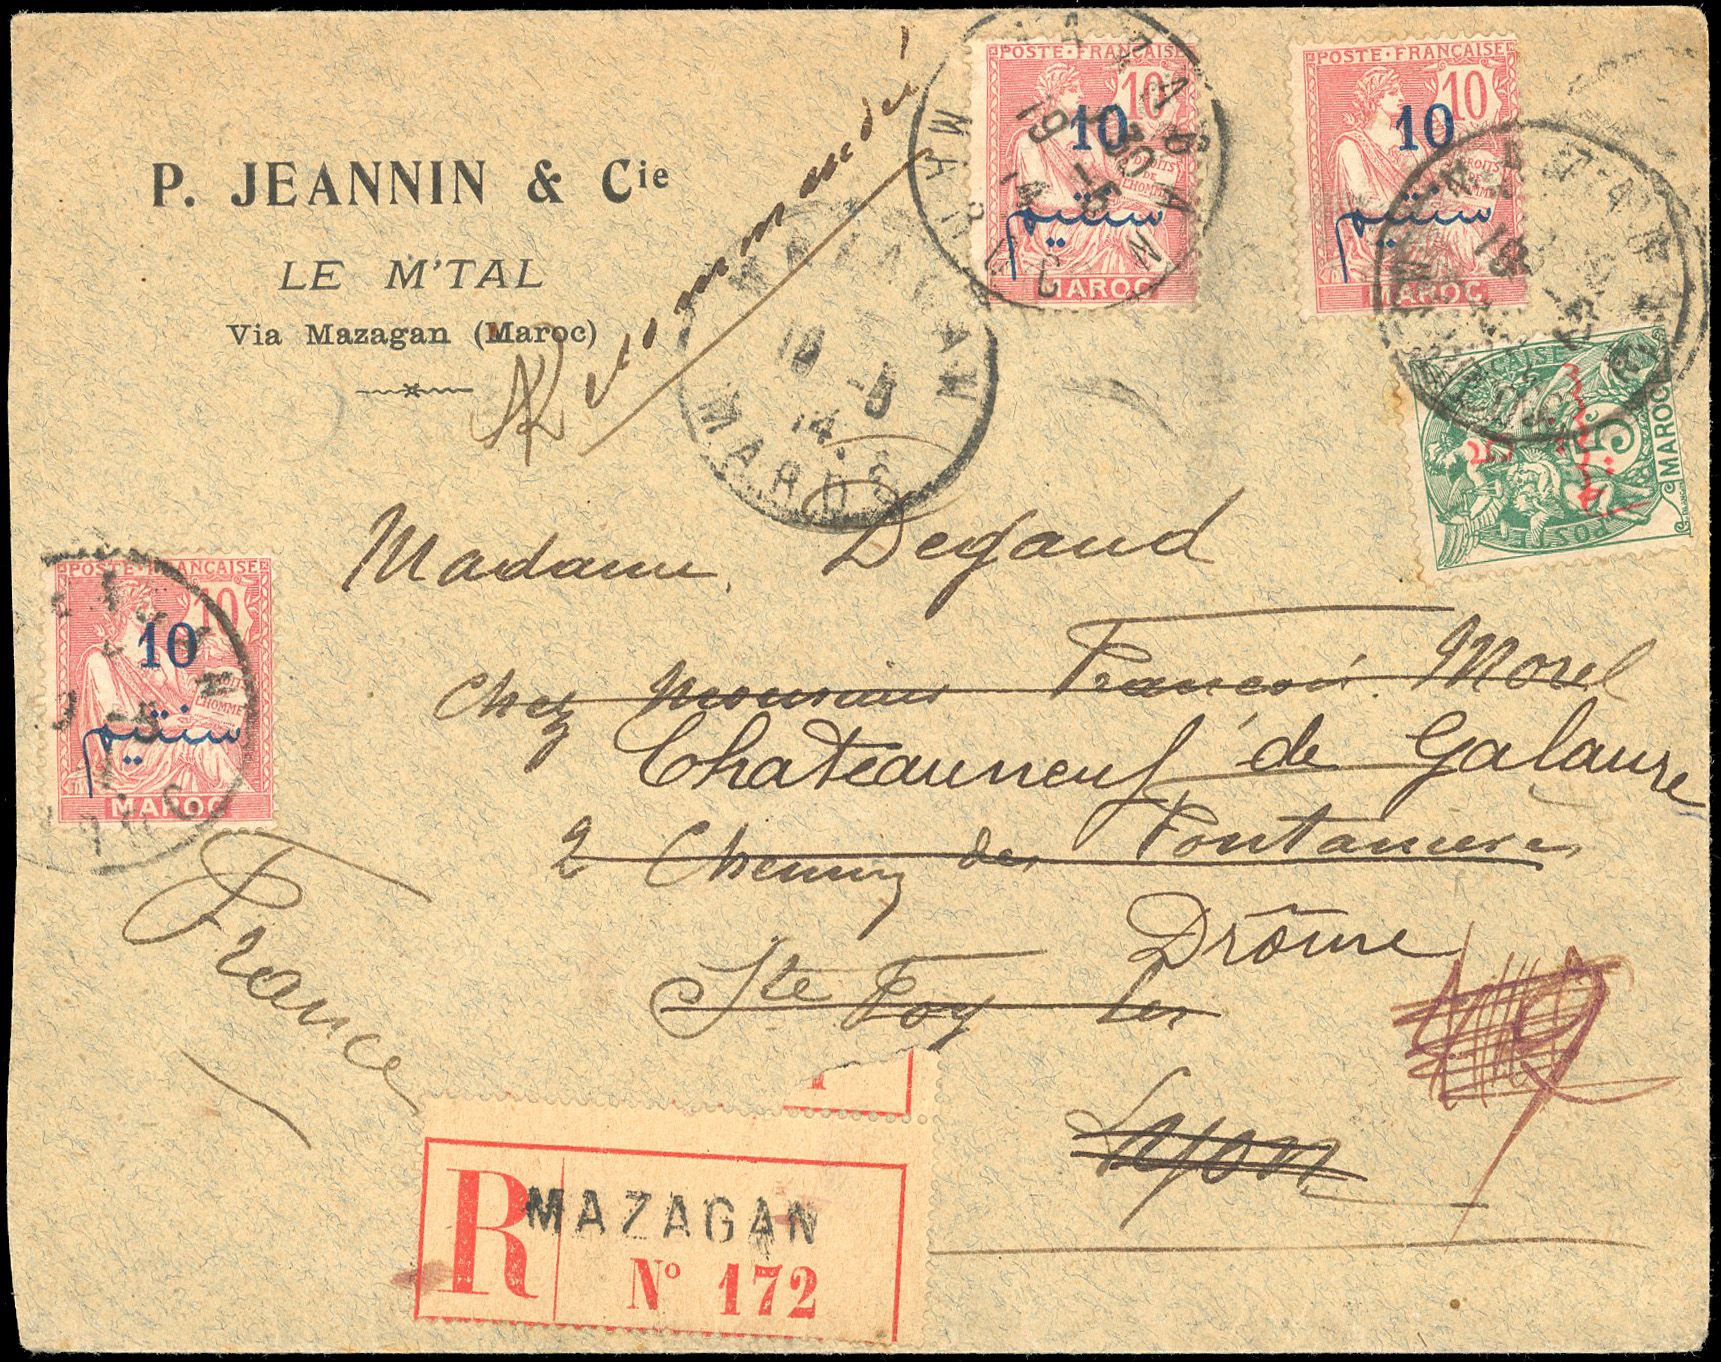 P. JEANNIN & Cie
LE M'TAL
Via Mazagan (Maroc)
Recommandé
MAZAGAN
19 -5
14
MAROC
POSTE · FRANÇAISE
10
10
DROITS
DE
L'HOMME
سنتيم
MAROC
POSTE · FRANÇAISE
10
10
DROITS
DE
L'HOMME
سنتيم
MAROC
5
5
MAROC
POSTE · FRANÇAISE
10
10
L'HOMME
سنتيم
MAROC
Madame Degaud
chez Monsieur François Morel
Chateauneuf de Galaure
2 Chemin des Fontanieres
Drôme
Ste Foy les
Lyon
France
R MAZAGAN
N° 172